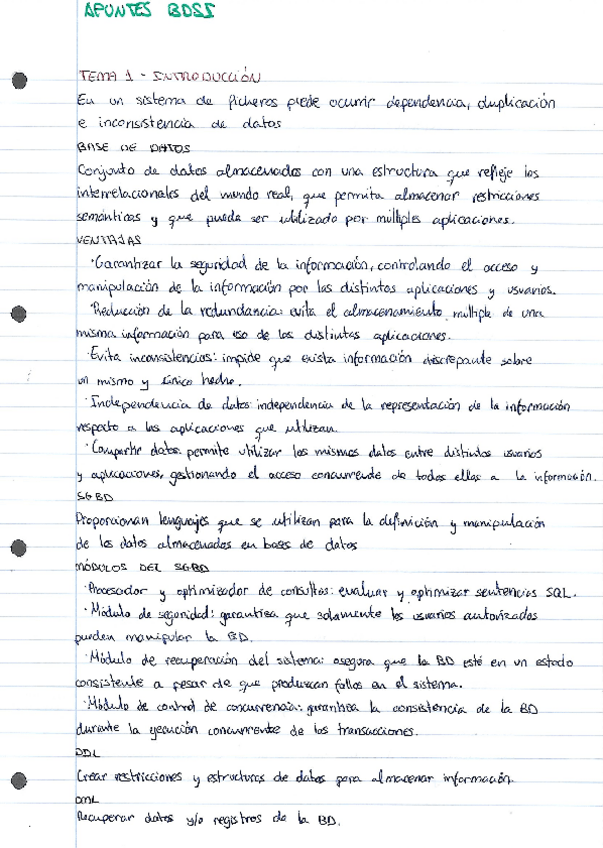 APUNTES BDSI
TEMA 1 - INTRODUCCIÓN
En un sistema de ficheros puede ocurrir dependencia, duplicación
e inconsistencia de datos
BASE DE DATOS
Conjunto de datos almacenados con una estructura que refleje las
interrelacionales del mundo real, que permita almacenar restricciones
semánticas y que pueda ser utilizado por múltiples aplicaciones.
VENTAJAS
· Garantizar la seguridad de la información, controlando el acceso y
manipulación de la información por las distintas aplicaciones y usuarios.
· Reducción de la redundancia: evita el almacenamiento multiple de una
misma información para uso de las distintas aplicaciones.
· Evita inconsistencias: impide que exista información discrepante sobre
un mismo y único hecho.
· Independencia de datos: independencia de la representación de la información
respecto a las aplicaciones que utilizan.
· Compartir datos: permite utilizar los mismos datos entre distintos usuarios
y aplicaciones, gestionando el acceso concurrente de todos ellas a la información.
SGBD
Proporcionan lenguajes que se utilizan para la definición y manipulación
de los datos almacenados en bases de datos
MÓDULOS DEL SGBD
· Procesador y optimizador de consultas: evaluar y optimizar sentencias SQL.
· Módulo de seguridad: garantiza que solamente los usuarios autorizados
pueden manipular la BD.
· Módulo de recuperación del sistema: asegura que la BD esté en un estado
consistente a pesar de que produzcan fallos en el sistema.
· Módulo de control de concurrencia: garantiza la consistencia de la BD
durante la ejecución concurrente de las transacciones.
DDL
Crear restricciones y estructuras de datos para almacenar información.
DML
Recuperar datos y/o registros de la BD.